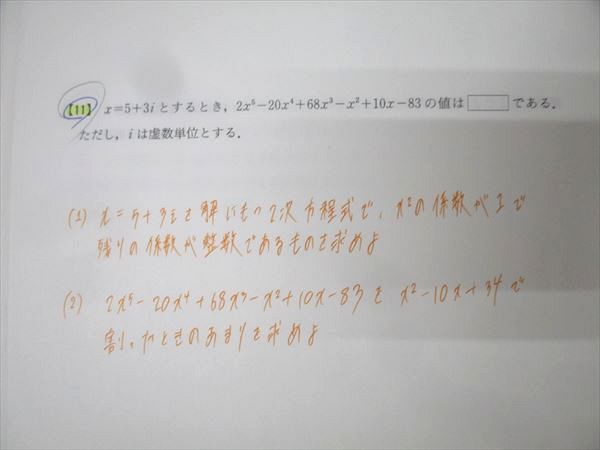 【11】 x=5+3i とするとき, 2x⁵−20x⁴+68x³−x²+10x−83 の値は □ である.
ただし, i は虚数単位とする.
(1) x=5+3i を解にもつ2次方程式で、x²の係数が1で
残りの係数が整数であるものを求めよ
(2) 2x⁵−20x⁴+68x³−x²+10x−83 を x²−10x+34で
割ったときのあまりを求めよ